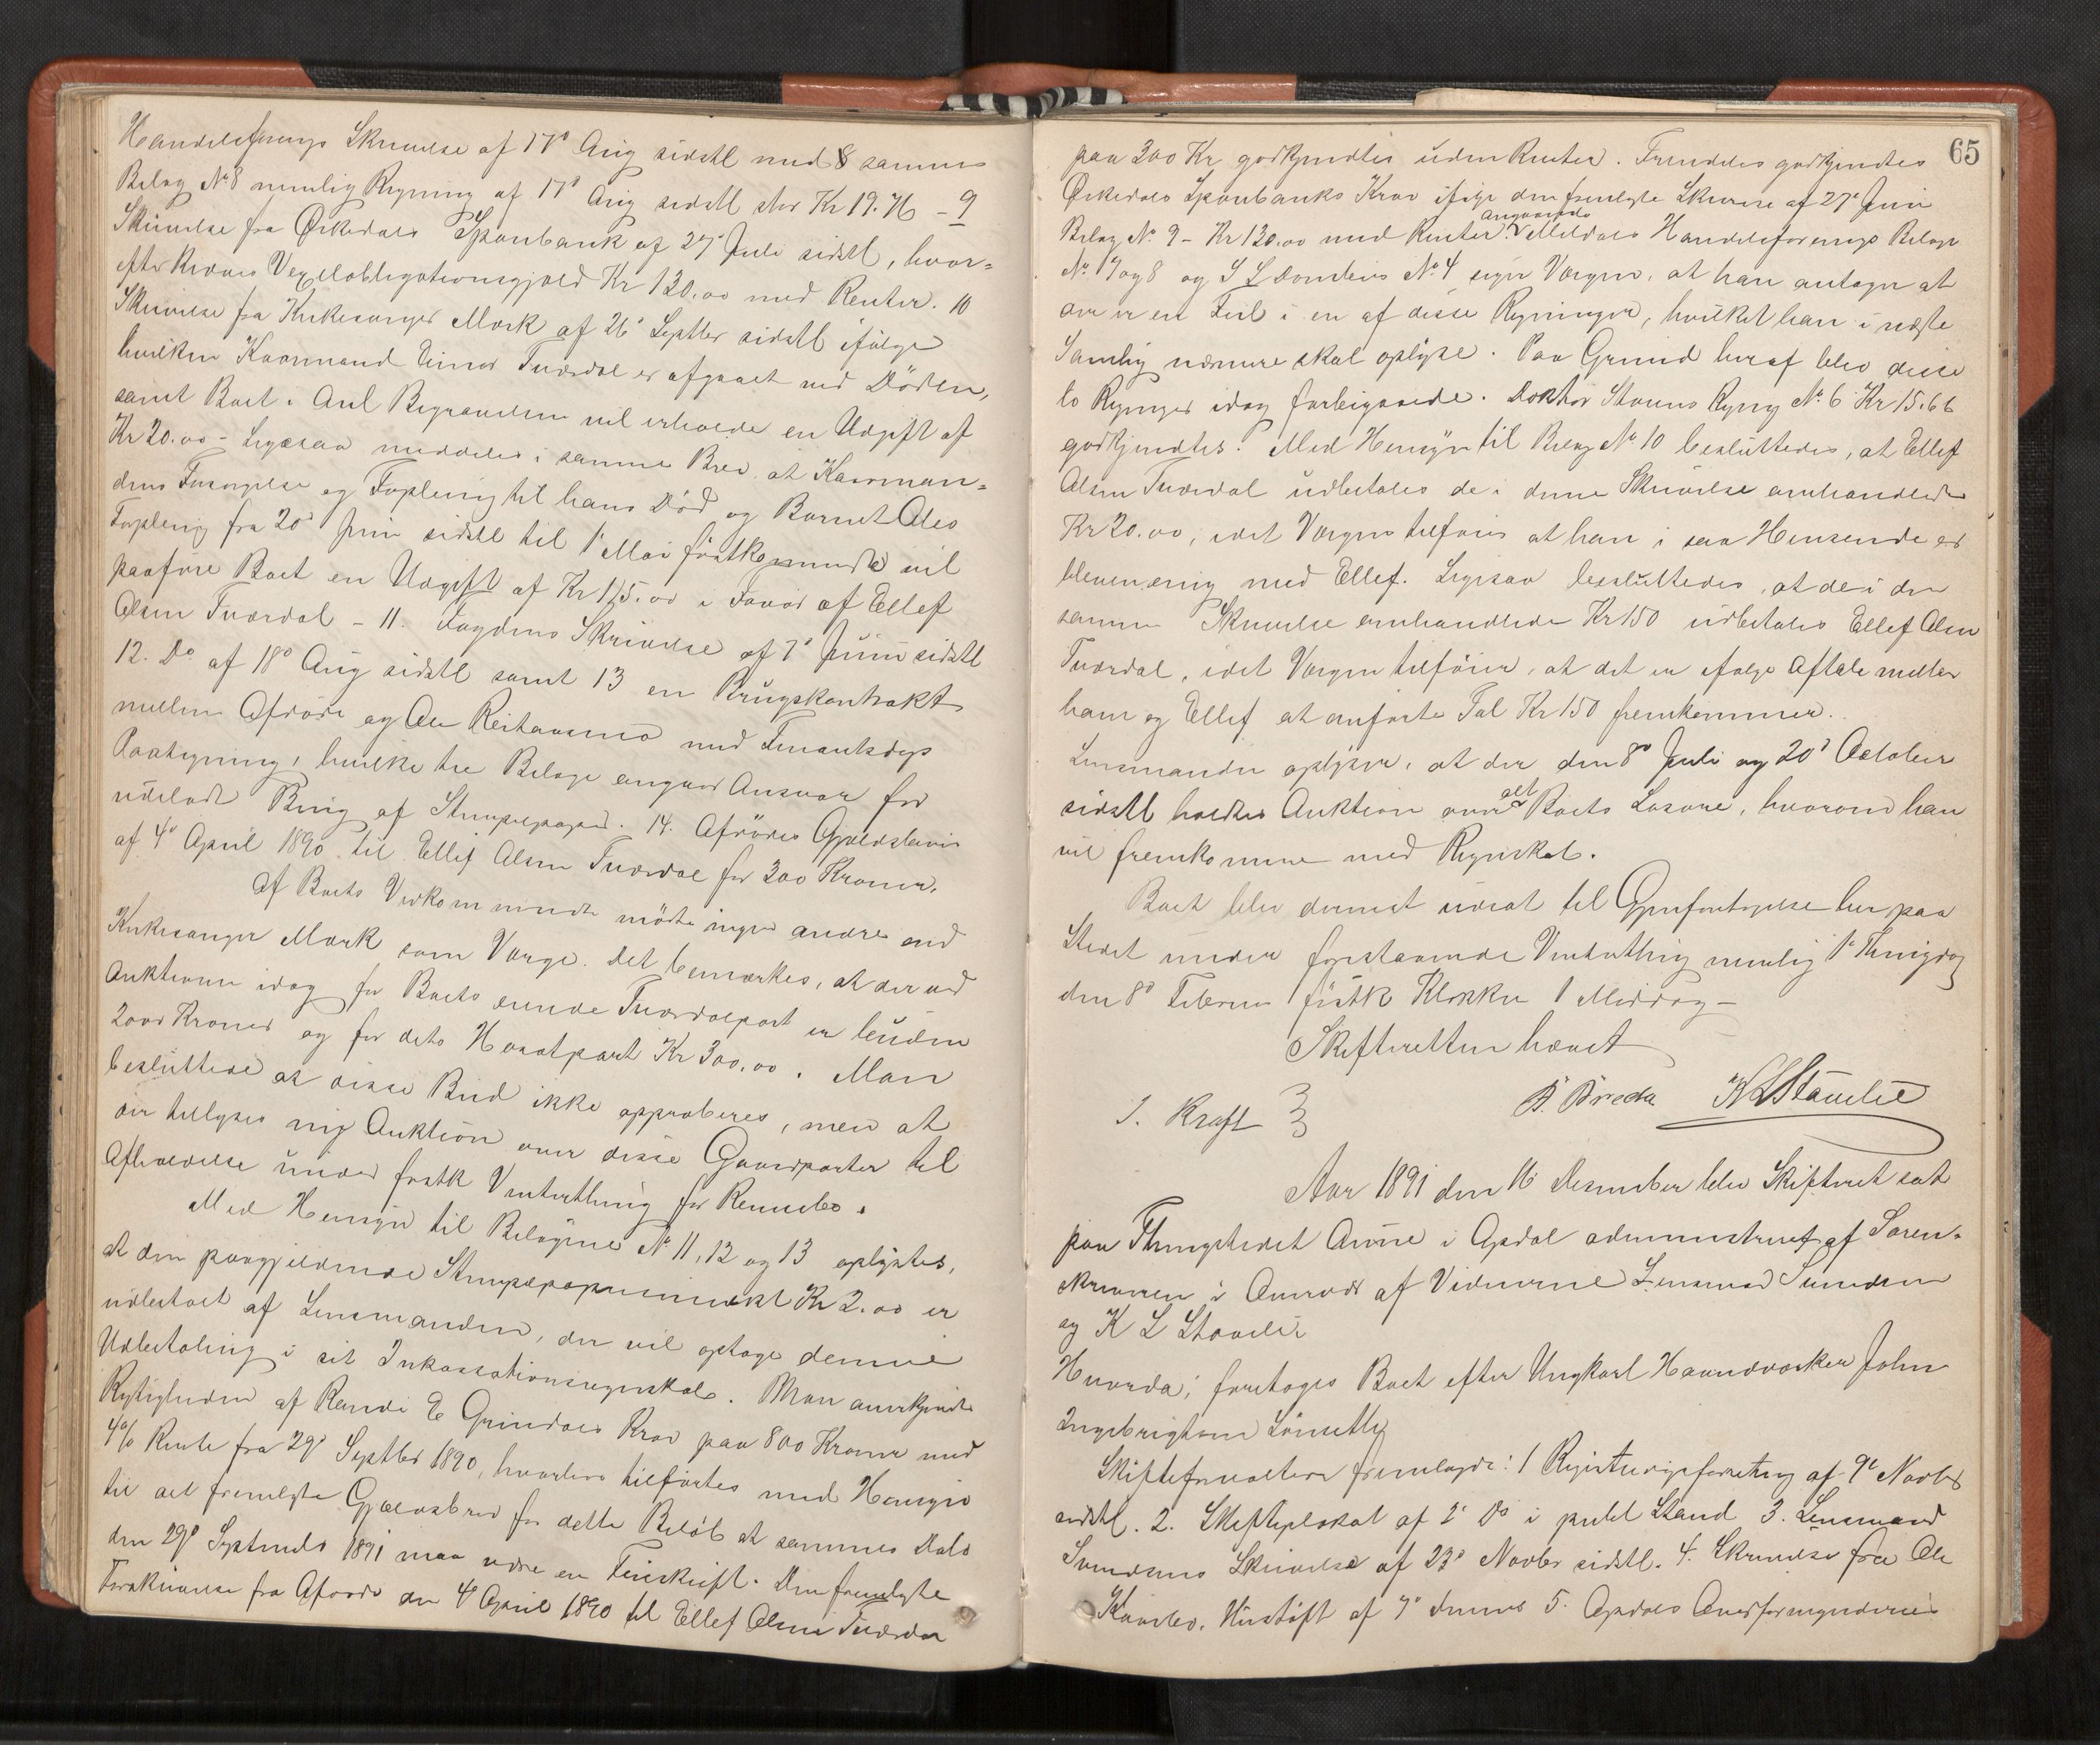 Handelsforenings Skrivelse af 17d Aug sidstl med 8 samme
Bilag No 8 nemlig Regning af 17d Aug sidstl stor Kr 19.76 - 9
Skrivelse fra Ørkedals Sparebank af 27d Juli sidstl, hvor-
efter Vexelobligationsgjæld Kr 120.00 med Renter. 10
Skrivelse fra Kirkesanger Mærk af 26d Septbr sidstl ifølge
hvilken Kaarmand Einar Tværdal er afgaaet ved Døden,
samt Boet i Anl Begravelsen vil erholde en Udgift af
Kr 20.00 - Ligesaa meddeles i samme Brev at Kaarman-
dens Forsørgelse og Forpleining til hans Død og Barnet Oles
Forpleining fra 20d Juni sidstl til 1d Mai førstkommende vil
paaføre Boet en Udgift af Kr 115.00 i Favør af Ellef
Olsen Tværdal - 11. Fogdens Skrivelse af 7d Juni sidstl
12. Do af 18d Aug sidstl samt 13 en Brugskontrakt
mellem Afdøde og Ole Reitaasmo med
Paategning, hvilke tre Bilage angaar Ansvar for
udeladt Brug af Stempelpapir. 14. Afdødes Gjældsbevis
af 4d April 1890 til Ellef Olsen Tværdal for 300 Kroner.
Af Boets Vedkommende mødte ingen andre end
Kirkesanger Mærk som Værge. Det bemærkes, at der ved
Auktionen idag for Boets eiende Tværdalpart er buden
2000 Kroner og for dets Hoset part Kr 300.00. Man
besluttede at disse Bud ikke approberes, men at
der tillyses ny Auktion over disse Gaardparter til
Afholdelse under førstk Vinterthing for Rennebo.
Med Hensyn til Bilagene No 11, 12 og 13 oplystes,
at den paagjældende Stempelpapirsmulkt Kr 2.00 er
udbetalt af Lensmanden, der vil optage denne
Udbetaling i sit Inkassationsregnskab. Man anerkjendte
Rigtigheden af Randi E Grindals Krav paa 800 Kroner med
4% Rente fra 29d Septbr 1890, hvorhos tilførtes med Hensyn
til det fremlagte Gjældsbrev for dette Beløb at sammes Dato
den 29d Septembr 1891 maa være en Feilskrift. Den fremlagte
Forskrivelse fra Afdøde den 4d April 1890 til Ellef Olsen Tværdal
65
paa 300 Kr godkjendtes uden Renter. Fremdeles godkjendtes
Ørkedals Sparebanks Krav ifølge den fremlagte Skrivelse af 27d Juni
Bilag No 9 - Kr 120.00 med Renter. angaaende Meldals Handelsforenings Bilage
No 7 og 8 og No 4 siger Værgen, at han antager at
der er en Feil i en af disse Regninger, hvilket han i næste
Samling nærmere skal oplyse. Paa Grund heraf blev disse
to Regninger idag forbigaaede. Doktor Regng No 6 Kr 15.66
godkjendtes. Med Hensyn til Bilag No 10 besluttedes, at Ellef
Olsen Tværdal udbetales de i denne Skrivelse omhandlede
Kr 20.00, idet Værgen tilføier at han i saa Henseende er
bleven enig med Ellef. Ligesaa besluttedes, at de i den
samme Skrivelse omhandlede Kr 150 udbetales Ellef Olsen
Tværdal, idet Værgen tilføier, at det er ifølge Aftale mellem
ham og Ellef at anførte Tal Kr 150 fremkommer.
Lensmanden oplyser, at der den 8d Juli og 20d October
sidstl holdtes Auktion over alt Boets Løsøre, hvorom han
vil fremkomme med Regnskab.
Boet blev dernæst udsat til Gjenforetagelse her paa
Stedet under forestaaende Vinterthing nemlig 1d Thingdag
den 8d Februar førstk Klokken 1 Middag -
Skifteretten hævet
J. Kraft B. Breda K L Stavlie
Aar 1891 den 16 Desember blev Skifteret sat
paa Thingstedet Aune i Opdal administreret af Soren-
skriveren i Overvær af Vidnerne Lensmand Svendsen
og K L Stavlie
Hvorda: foretoges Boet efter Ungkarl Haandværker John
Ingebrigtsen Lønseth
Skifteforvalteren fremlagde: 1 Registreringsforretning af 9d Novbr
sidstl. 2. Skifteplakat af 2d Do i publ Stand 3. Lensmand
Svendsens Skrivelse af 23d Novbr sidstl. 4. Skrivelse fra Ole
af 7d dennes 5. Opdals Overformynderies